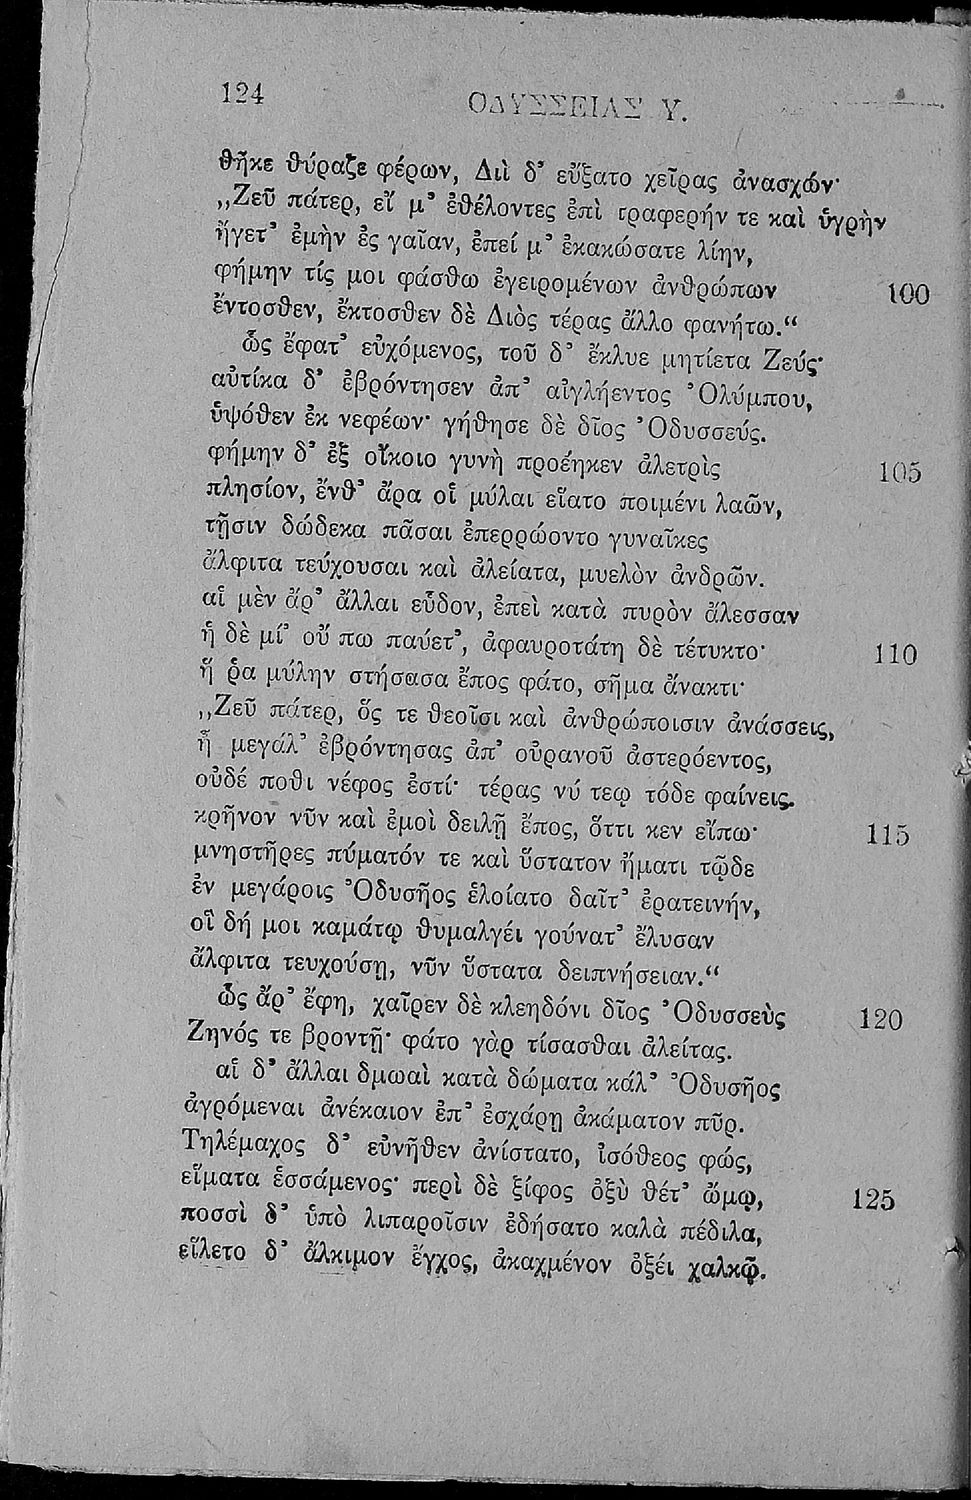 124
ΟΔΥΣΣΕΙΑΣ Υ.
θῆκε θύραζε φέρων, Διὶ δ’ εὔξατο χεῖρας ἀνασχών·
„Ζεῦ πάτερ, εἴ μ’ ἐθέλοντες ἐπὶ τραφερήν τε καὶ ὑγρὴν
ἤγετ’ ἐμὴν ἐς γαῖαν, ἐπεί μ’ ἐκακώσατε λίην,
φήμην τίς μοι φάσθω ἐγειρομένων ἀνθρώπων 100
ἔντοσθεν, ἔκτοσθεν δὲ Διὸς τέρας ἄλλο φανήτω.“
ὣς ἔφατ’ εὐχόμενος, τοῦ δ’ ἔκλυε μητίετα Ζεύς·
αὐτίκα δ’ ἐβρόντησεν ἀπ’ αἰγλήεντος Ὀλύμπου,
ὑψόθεν ἐκ νεφέων· γήθησε δὲ δῖος Ὀδυσσεύς.
φήμην δ’ ἐξ οἴκοιο γυνὴ προέηκεν ἀλετρὶς 105
πλησίον, ἔνθ’ ἄρα οἱ μύλαι εἵατο ποιμένι λαῶν,
τῇσιν δώδεκα πᾶσαι ἐπερρώοντο γυναῖκες
ἄλφιτα τεύχουσαι καὶ ἀλείατα, μυελὸν ἀνδρῶν.
αἱ μὲν ἄρ’ ἄλλαι εὗδον, ἐπεὶ κατὰ πυρὸν ἄλεσσαν
ἡ δὲ μί’ οὔ πω παύετ’, ἀφαυροτάτη δὲ τέτυκτο· 110
ἥ ῥα μύλην στήσασα ἔπος φάτο, σῆμα ἄνακτι·
„Ζεῦ πάτερ, ὅς τε θεοῖσι καὶ ἀνθρώποισιν ἀνάσσεις,
ἦ μεγάλ’ ἐβρόντησας ἀπ’ οὐρανοῦ ἀστερόεντος,
οὐδέ ποθι νέφος ἐστί· τέρας νύ τεῳ τόδε φαίνεις.
κρῆνον νῦν καὶ ἐμοὶ δειλῇ ἔπος, ὅττι κεν εἴπω· 115
μνηστῆρες πύματόν τε καὶ ὕστατον ἤματι τῷδε
ἐν μεγάροις Ὀδυσῆος ἑλοίατο δαῖτ’ ἐρατεινήν,
οἳ δή μοι καμάτῳ θυμαλγέι γούνατ’ ἔλυσαν
ἄλφιτα τευχούσῃ, νῦν ὕστατα δειπνήσειαν.“
ὣς ἄρ’ ἔφη, χαῖρεν δὲ κλεηδόνι δῖος Ὀδυσσεὺς 120
Ζηνός τε βροντῇ· φάτο γὰρ τίσασθαι ἀλείτας.
αἱ δ’ ἄλλαι δμωαὶ κατὰ δώματα κάλ’ Ὀδυσῆος
ἀγρόμεναι ἀνέκαιον ἐπ’ ἐσχάρῃ ἀκάματον πῦρ.
Τηλέμαχος δ’ εὐνῆθεν ἀνίστατο, ἰσόθεος φώς,
εἵματα ἑσσάμενος· περὶ δὲ ξίφος ὀξὺ θέτ’ ὤμῳ, 125
ποσσὶ δ’ ὑπὸ λιπαροῖσιν ἐδήσατο καλὰ πέδιλα,
εἵλετο δ’ ἄλκιμον ἔγχος, ἀκαχμένον ὀξέι χαλκῷ.